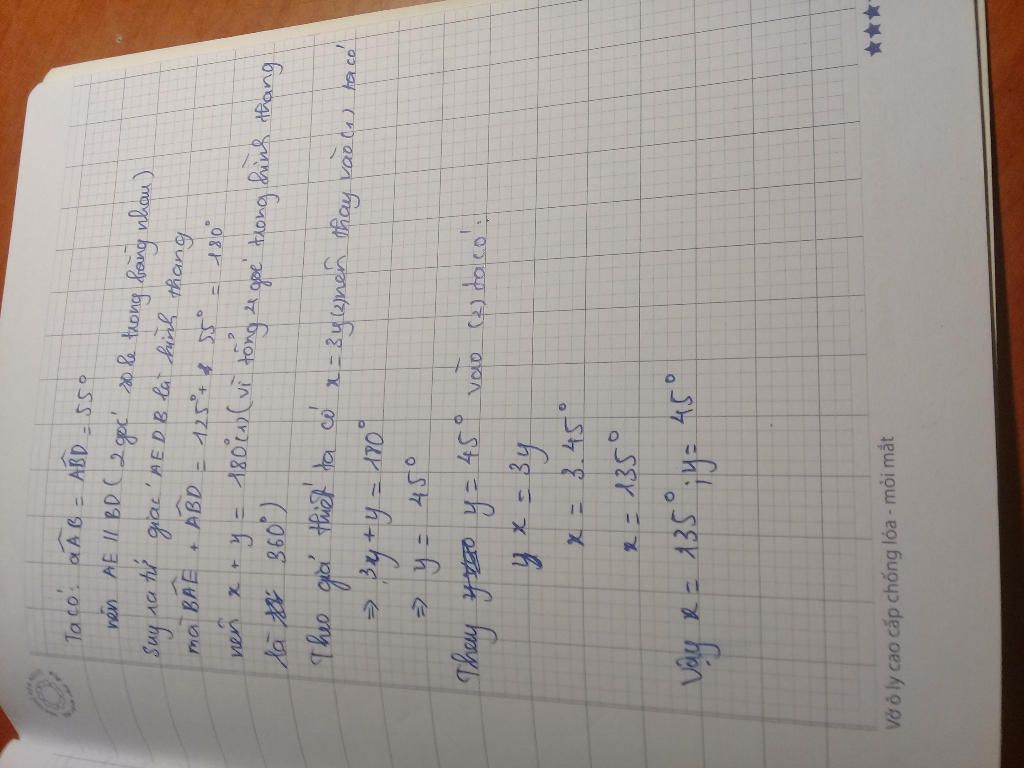 Ta có: aÂB = ABD̂ = 55°
nên AE // BD ( 2 góc so le trong bằng nhau )
suy ra tứ giác AEDB là hình thang
mà BÂE + ABD̂ = 125° + 55° = 180°
nên x + y = 180° (1) ( vì tổng 4 góc trong hình thang
là 360° )
Theo giả thiết ta có x = 3y (2) nên thay vào (1) ta có
⇒ 3y + y = 180°
⇒ y = 45°
Thay y = 45° vào (2) ta có:
x = 3y
x = 3.45°
x = 135°
Vậy x = 135° ; y = 45°
Vở ô ly cao cấp chống lóa - mỏi mắt
★★★